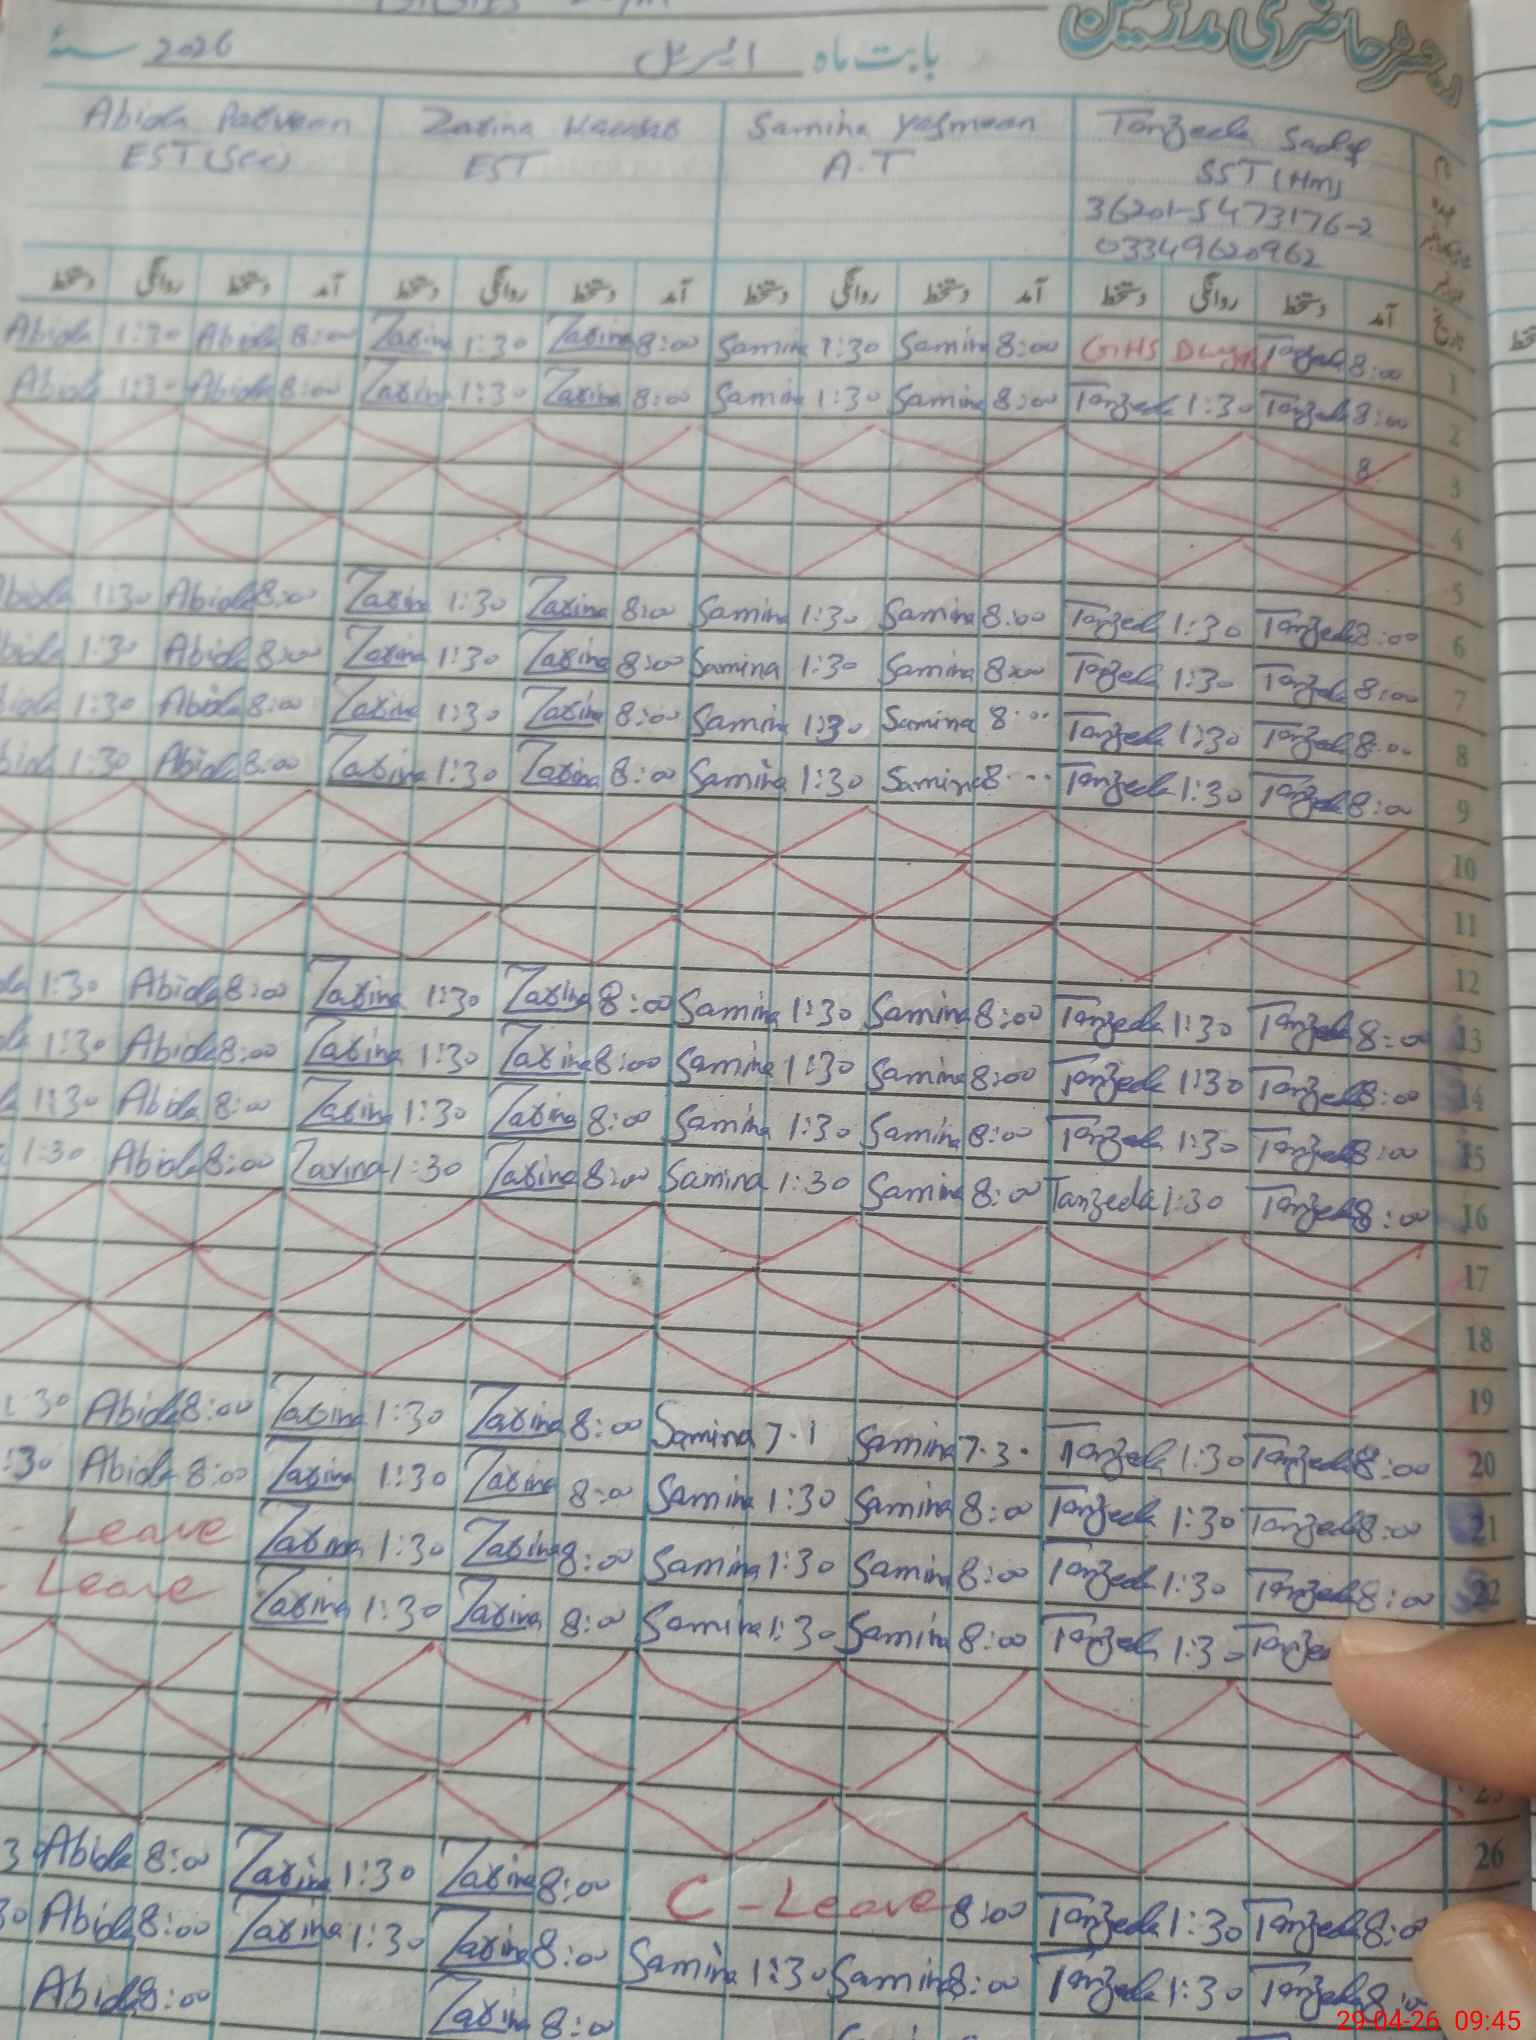 رجسٹر حاضری مدرسین
بابت ماہ اپریل 2026 سنہ
Tanzeela Sadaf Samina Yasmeen Zarina Kausar Abida Parveen
SST (Hm) A.T EST EST (Sci)
36201-5473176-2
03349620962
آمد دستخط روانگی دستخط آمد دستخط روانگی دستخط آمد دستخط روانگی دستخط آمد دستخط روانگی دستخط
1 8:00 Tanzeela GHS 8:00 Samina 1:30 Samina 8:00 Zarina 1:30 Zarina 8:00 Abida 1:30 Abida
2 8:00 Tanzeela 1:30 Tanzeela 8:00 Samina 1:30 Samina 8:00 Zarina 1:30 Zarina 8:00 Abida 1:30 Abida
3 8
4
5
6 8:00 Tanzeela 1:30 Tanzeela 8:00 Samina 1:30 Samina 8:00 Zarina 1:30 Zarina 8:00 Abida 1:30 Abida
7 8:00 Tanzeela 1:30 Tanzeela 8:00 Samina 1:30 Samina 8:00 Zarina 1:30 Zarina 8:00 Abida 1:30
8 8:00 Tanzeela 1:30 Tanzeela 8:00 Samina 1:30 Samina 8:00 Zarina 1:30 Zarina 8:00 Abida 1:30
9 8:00 Tanzeela 1:30 Tanzeela 8:00 Samina 1:30 Samina 8:00 Zarina 1:30 Zarina 8:00 Abida 1:30
10
11
12
13 8:00 Tanzeela 1:30 Tanzeela 8:00 Samina 1:30 Samina 8:00 Zarina 1:30 Zarina 8:00 Abida 1:30
14 8:00 Tanzeela 1:30 Tanzeela 8:00 Samina 1:30 Samina 8:00 Zarina 1:30 Zarina 8:00 Abida 1:30
15 8:00 Tanzeela 1:30 Tanzeela 8:00 Samina 1:30 Samina 8:00 Zarina 1:30 Zarina 8:00 Abida 1:30
16 8:00 Tanzeela 1:30 Tanzeela 8:00 Samina 1:30 Samina 8:00 Zarina 1:30 Zarina 8:00 Abida 1:30
17
18
19
20 8:00 Tanzeela 1:30 Tanzeela 7.3. Samina 7.1 Samina 8:00 Zarina 1:30 Zarina 8:00 Abida 1:30
21 8:00 Tanzeela 1:30 Tanzeela 8:00 Samina 1:30 Samina 8:00 Zarina 1:30 Zarina 8:00 Abida :30
22 8:00 Tanzeela 1:30 Tanzeela 8:00 Samina 1:30 Samina 8:00 Zarina 1:30 Zarina - Leave
1:30 Tanzeela 8:00 Samina 1:30 Samina 8:00 Zarina 1:30 Zarina - Leave
25
26
8:00 Tanzeela 1:30 Tanzeela 8:00 C - Leave 8:00 Zarina 1:30 Zarina 8:00 Abida 3
8:00 Tanzeela 1:30 Tanzeela 8:00 Samina 1:30 Samina 8:00 Zarina 1:30 Zarina 8:00 Abida 30
8:00 Zarina 8:00 Abida
29-04-26 09:45